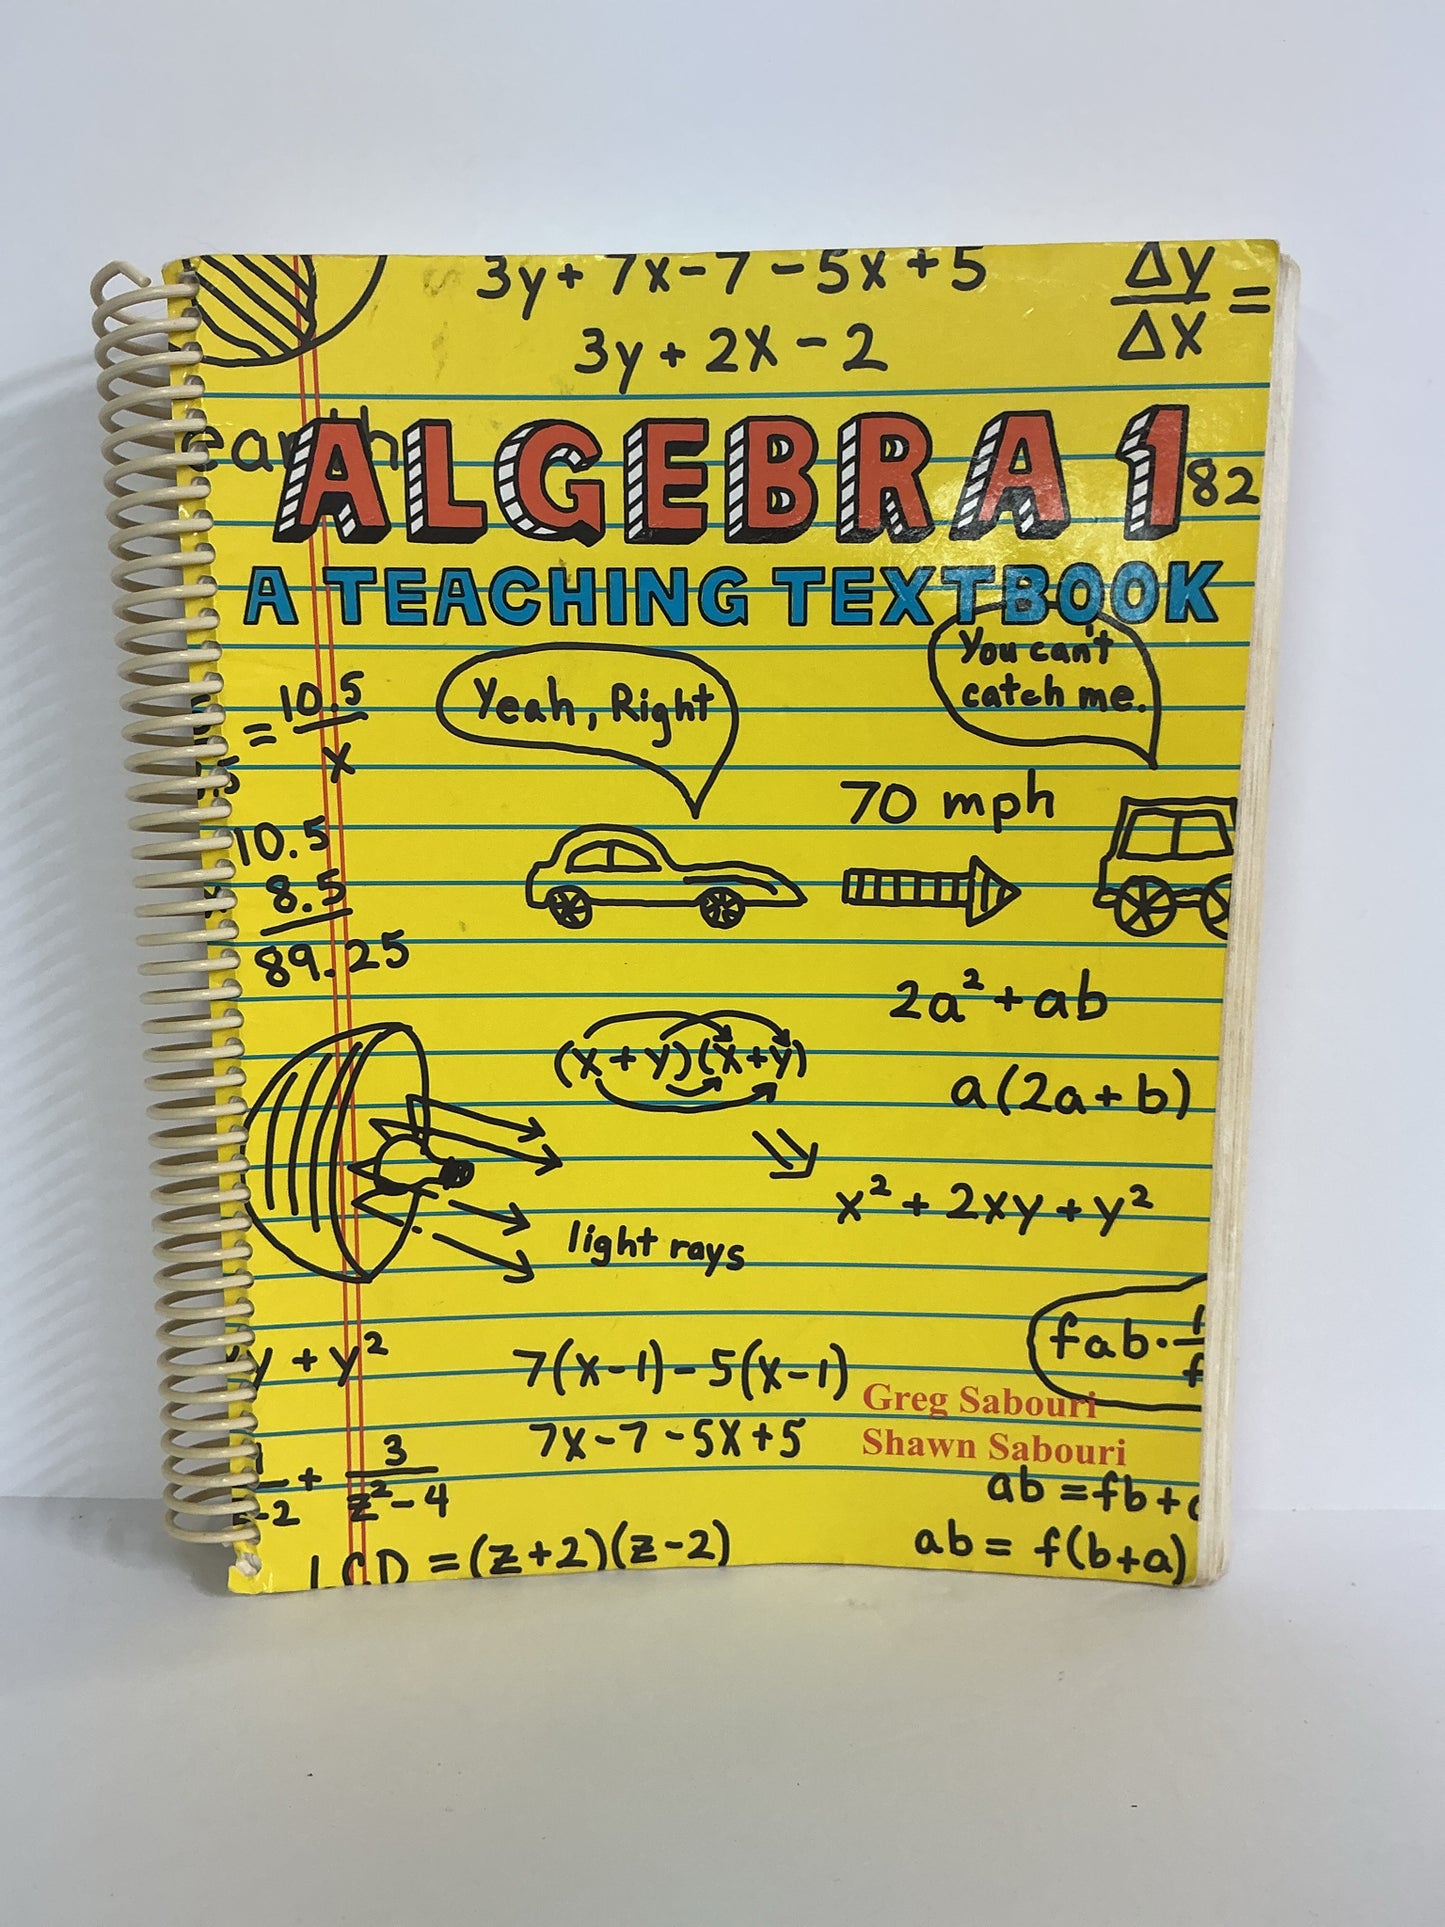 3y + 7x - 7 - 5x + 5
Δy
Δx =
3y + 2x - 2
earth
ALGEBRA 1
82
A TEACHING TEXTBOOK
You can't
catch me.
Yeah, Right
= 10.5
x
70 mph
10.5
8.5
89.25
2a² + ab
(x + y)(x + y)
a(2a + b)
x² + 2xy + y²
light rays
fab ·
y + y²
7(x - 1) - 5(x - 1)
Greg Sabouri
7x - 7 - 5x + 5
Shawn Sabouri
+ 3
z² - 4
-2
ab = fb +
LCD = (z + 2)(z - 2)
ab = f(b + a)